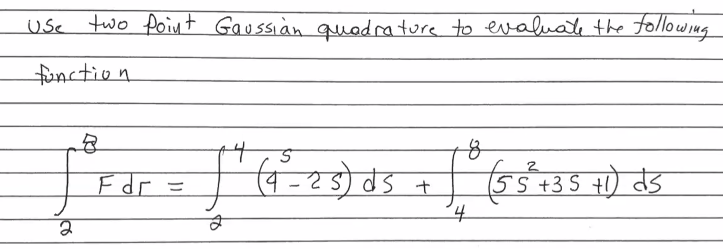 Use two point Gaussian quadrature to evaluate the following
function
∫₂⁸ F dr = ∫₂⁴ (4^s - 2s) ds + ∫₄⁸ (5s² + 3s + 1) ds